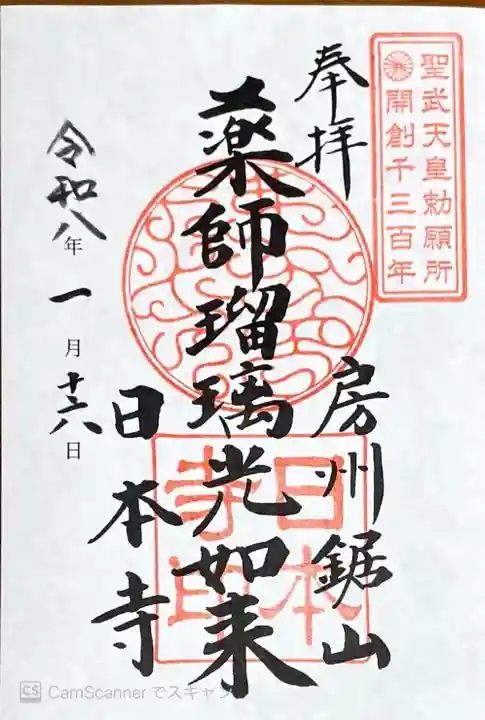 聖武天皇勅願所
開創千三百年
奉拝
房州鋸山
薬師瑠璃光如来
日本寺
日本寺印
令和八年一月十六日
CS CamScanner でスキャン